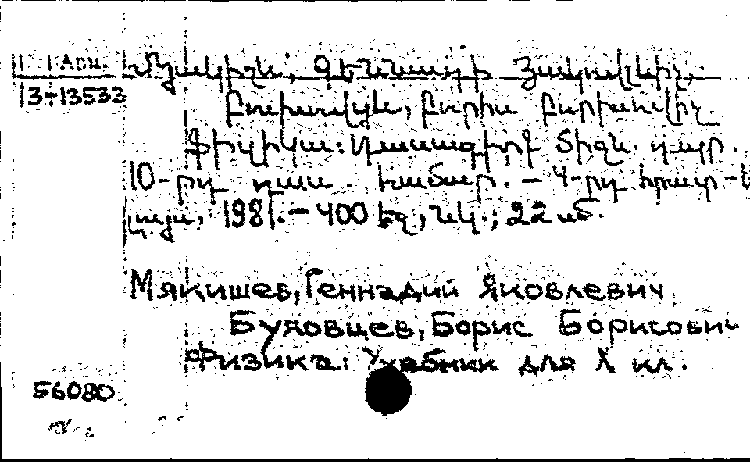 Арм.
13+13533
Մյակիշև, Գեննադի Յակովլևիչ,
Բուխովցև, Բորիս Բորիսովիչ
Ֆիզիկա: Դասագիրք միջն. դպր.
10-րդ դաս համար. — 4-րդ հրատ.
198 — 400 էջ, նկ.; 22 սմ.
Мякишев, Геннадий Яковлевич,
Буховцев, Борис Борисович
Физика: Учебник для X кл.
56080